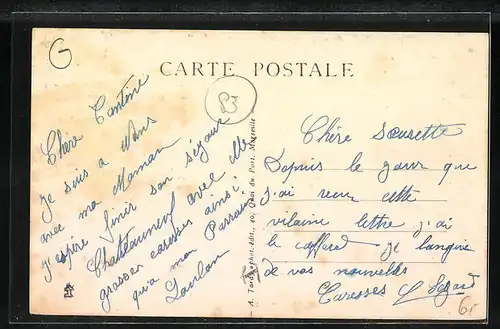 G
CARTE POSTALE
B
Chère Tantine
je suis a Nans
avec ma Maman
j'espère finir son séjour
Chateauneuf avec elle
grosses caresses ainsi
qu'a mon Parrain
Loulou
quai du Port, Marseille
Chère Sousette
Depuis le jour que
j'ai reçu cette
vilaine lettre j'ai
le caffard je languie
de vos nouvelles
Caresses
6.